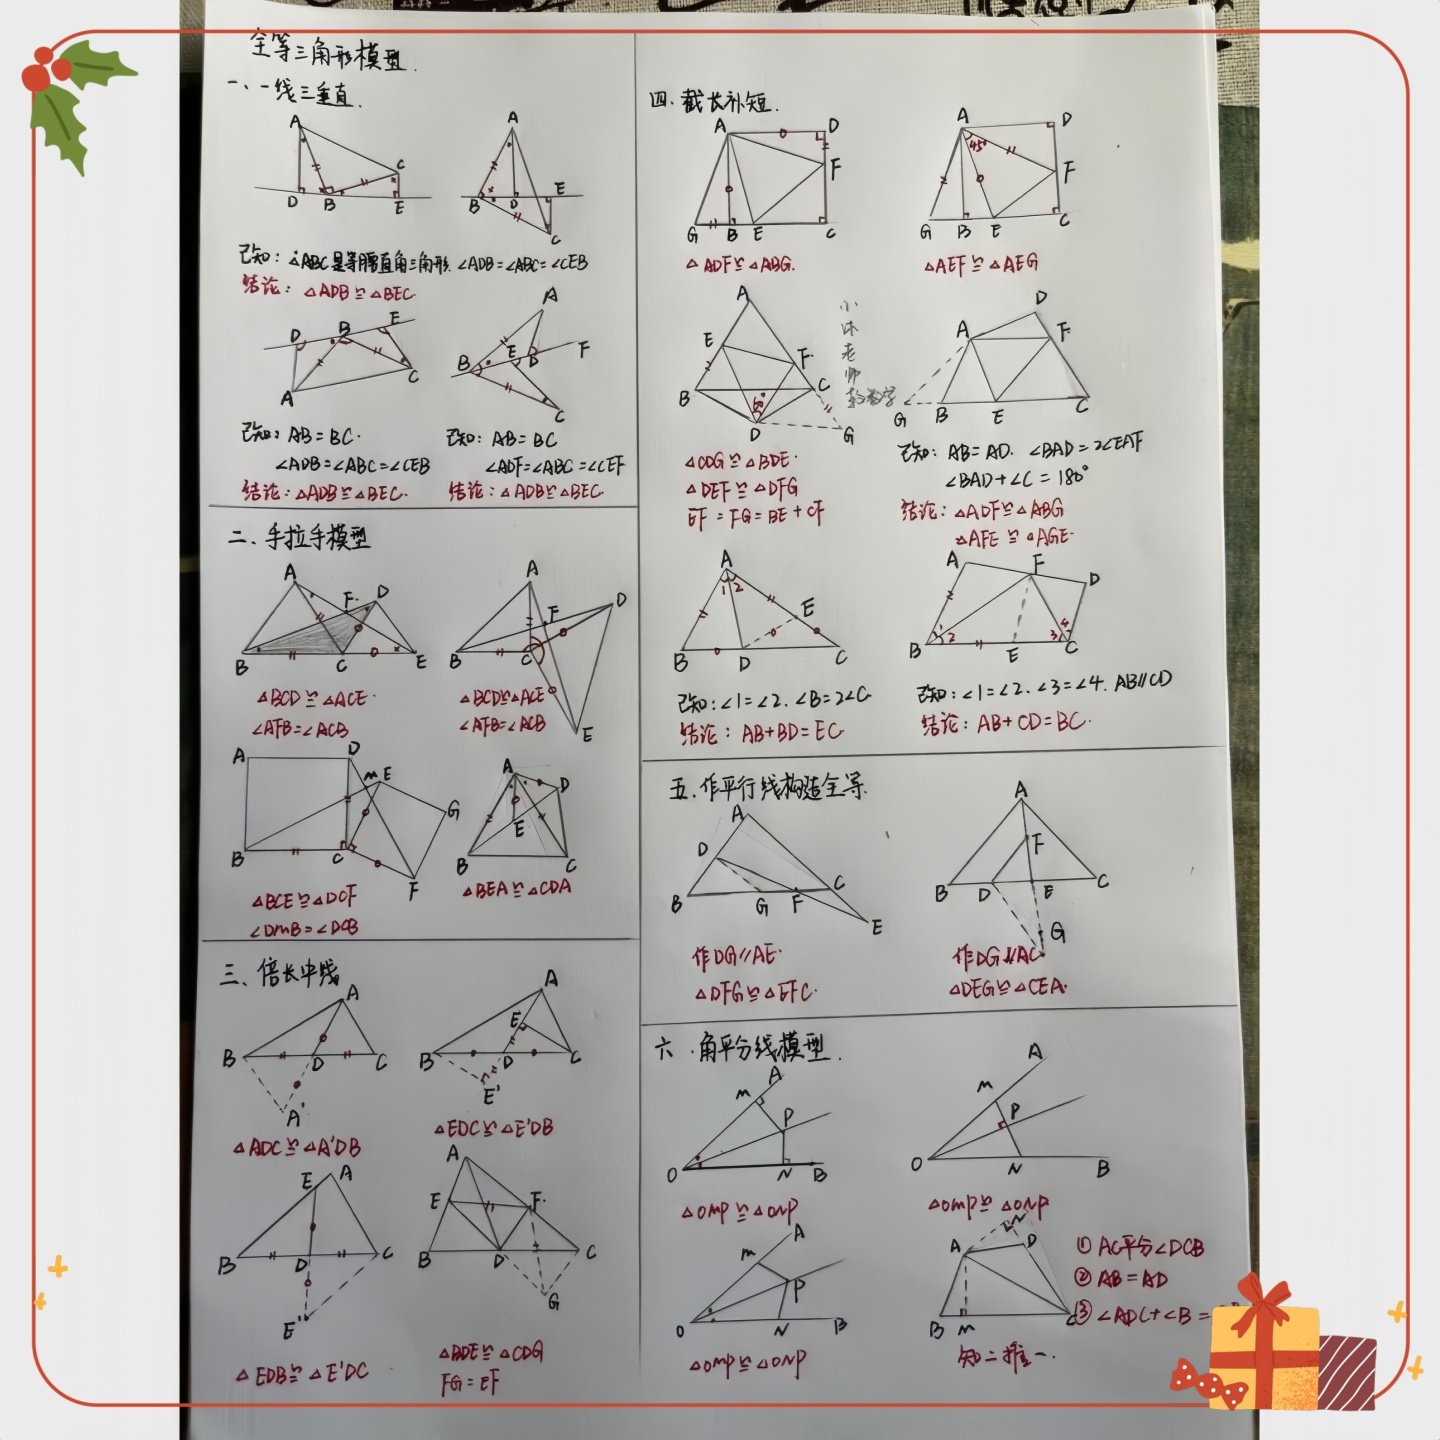 全等三角形模型.
一、一线三垂直.
A
C
D B E
A
B D E
C
已知: △ABC是等腰直角三角形. ∠ADB=∠ABC=∠CEB
结论: △ADB≌△BEC
D B E
A C
A
B E D F
C
已知: AB=BC.
∠ADB=∠ABC=∠CEB
结论: △ADB≌△BEC.
已知: AB=BC
∠ADF=∠ABC=∠CEF
结论: △ADB≌△BEC.
二、手拉手模型
A F D
B C E
△BCD≌△ACE.
∠AFB=∠ACB
A
F D
B C
E
△BCD≌△ACE
∠AFB=∠ACB
A D
M E
G
B C
F
△BCE≌△DCF
∠DMB=∠DCB
A D
E
B C
△BEA≌△CDA
三、倍长中线
A
B D C
A'
△ADC≌△A'DB
A
E
B D C
E'
△EDC≌△E'DB
E A
B D C
E'
△EDB≌△E'DC
A
E F
B D C
G
△BDE≌△CDG
FG=EF
四、截长补短.
A D
F
G B E C
△ADF≌△ABG.
A D
45°
F
G B E C
△AEF≌△AEG
A
E F
B C
60°
D G
小沐老师教数学
△CDG≌△BDE.
△DEF≌△DFG
EF=FG=BE+CF
D
A F
G B E C
已知: AB=AD. ∠BAD=2∠EAF
∠BAD+∠C=180°
结论: △ADF≌△ABG
△AFE≌△AGE.
A
1 2
E
B D C
已知: ∠1=∠2. ∠B=2∠C
结论: AB+BD=EC
A F D
1 2 3 4
B E C
已知: ∠1=∠2. ∠3=∠4. AB//CD
结论: AB+CD=BC.
五.作平行线构造全等.
A
D
B G F C
E
作DG//AE.
△DFG≌△EFC.
A
F
B D E C
G
作DG//AC
△DEG≌△CEA.
六.角平分线模型.
A
M
P
O N B
△OMP≌△ONP
A
M
P
O N B
△OMP≌△ONP
A
M
P
O N B
△OMP≌△ONP
N
A D
B M C
① AC平分∠DCB
② AB=AD
③ ∠ADC+∠B=
知二推一.